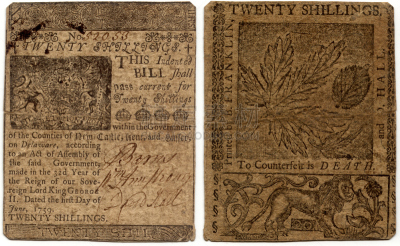 No. 52033
TWENTY SHILLINGS.
THIS Indented
BILL Shall
pass current for
Twenty Shillings
within the Government
of the Counties of New-Castle, Kent, and Sussex,
on Delaware, according
to an Act of Assembly
of the said Government,
made in the 32d Year of
the Reign of our Sovereign
Lord King GEORGE
II. Dated the first Day of
June, 1759.
TWENTY SHILLINGS.
TWENTY SHILLINGS.
Printed by B. FRANKLIN,
and D. HALL.
To Counterfeit is DEATH.